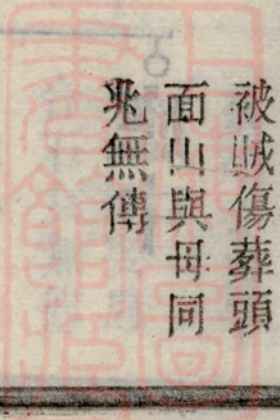 被賊傷葬頭
面山與母同
兆無傳